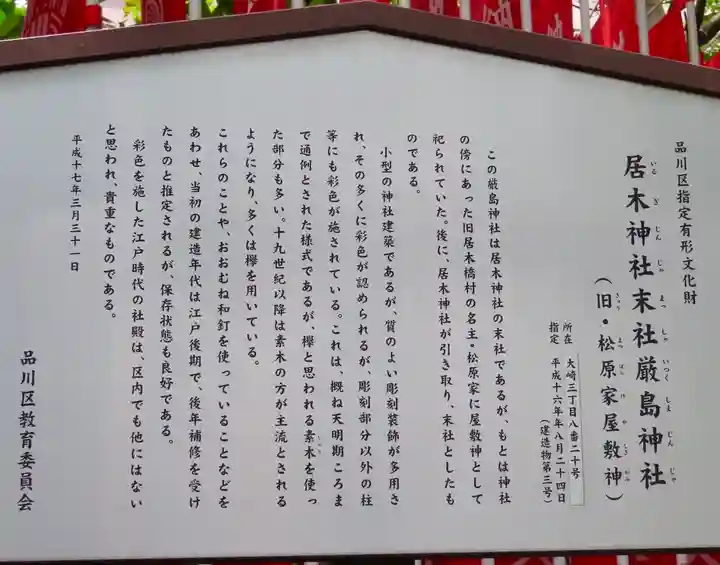 品川区指定有形文化財
居木神社末社厳島神社
いるぎじんじゃまつしゃいつくしまじんじゃ
（旧・松原家屋敷神）
きゅうまつばらけやしきがみ
所在 大崎三丁目八番二十号
指定 平成十六年年八月二十四日
（建造物第三号）
この厳島神社は居木神社の末社であるが、もとは神社
の傍にあった旧居木橋村の名主・松原家に屋敷神として
祀られていた。後に、居木神社が引き取り、末社としたも
のである。
小型の神社建築であるが、質のよい彫刻装飾が多用さ
れ、その多くに彩色が認められるが、彫刻部分以外の柱
等にも彩色が施されている。これは、概ね天明期ころま
で通例とされた様式であるが、欅と思われる素木を使っ
しらき
た部分も多い。十九世紀以降は素木の方が主流とされる
ようになり、多くは欅を用いている。
これらのことや、おおむね和釘を使っていることなどを
あわせ、当初の建造年代は江戸後期で、後年補修を受け
たものと推定されるが、保存状態も良好である。
彩色を施した江戸時代の社殿は、区内でも他にはない
と思われ、貴重なものである。
平成十七年三月三十一日
品川区教育委員会